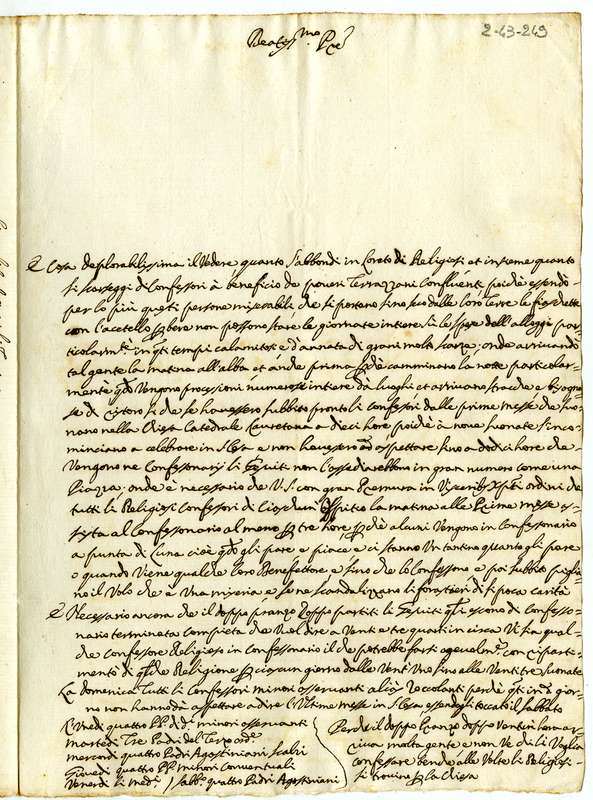 2-43-249
Beatiss.mo P're
È Cosa deplorabilissima il Vedere quanto s'abbondi in Loreto di Religiosi et insieme quanto
si scarseggi di Confessori à beneficio de poveri Terrazzani Confluenti poiche essendo
per lo più questi persone miserabili che si portano sino sco dalle loro Terre le
con l'acetello bere non possono stare le giornate intiere sù le spese dell'alloggi par
ticolarm.te in q.ti tempi calamitosi e d'annata di grani molto scarsa; onde arrivando
tal gente la matina all'alba et anche prima che camminano la notte particolar
mente q.do Vengono processioni numerose intiere da luoghi et arrivano stracche e bisogno
se di ristoro si che se havessero subbito pronti li Confessori dalle prime messe che suo
nano nella Chiesa Catedrale Lauretana a dieci hore poiche à nove suonate s'inco
minciano a celebrare in S. Casa e non havessero ad aspettare sino a dodici hore che
Vengono ne Confessionarij li Gesuiti non l'assediarebbono in gran numero come una
Piazza; onde è necessario che V.S. con gran Premura in ordini che
tutti li Religiosi Confessori di la matina alle Prime messe as
sista al Confessionario almeno tre hore alcuni Vengono in Confessionario
a punta di Luna cioè q.do gli pare e piace e ci stanno Un tantino quanto gli pare
o quando Viene qualche loro Benefattore e sino che lo Confessono e poi subbito piglia
no il Volo che è Una miseria e se ne scandalizzano li forastieri di sì poca carità
È Necessario ancora che il doppo pranzo doppo partiti li Gesuiti q.li escono di Confessio
nario terminata Compieta che Vol dire a Venti e tre quarti in circa Vi sia qual
che Confessore Religioso in Confessionario il che potrebbe farsi agevolm.te con riparti
mento di q.lche Religione ciascun giorno dalle Vent'Uno sino alle Ventitre suonate
La domenica Tutti li Confessori minori osservanti aliàs Zoccolanti perchè q.ti in q.l gior
no non hanno da aspettare a dire l'Ultime messe in S. Casa essendogli toccato il sabbato
Lunedì quattro PP. di d.i minori osservanti
martedì Tre Padri del Terzo ord.e
mercordì quattro Padri Agostiniani Scalzi
Giovedì quattro PP. minori Conventuali
Venerdì li med.i / sabb.o quattro Padri Agostiniani
Perche il doppo Pranzo doppo Venti hore ar
riva molta gente e non Vè chi li Voglia
confessare bende alle Volte li Religiosi
si trovino la Chiesa